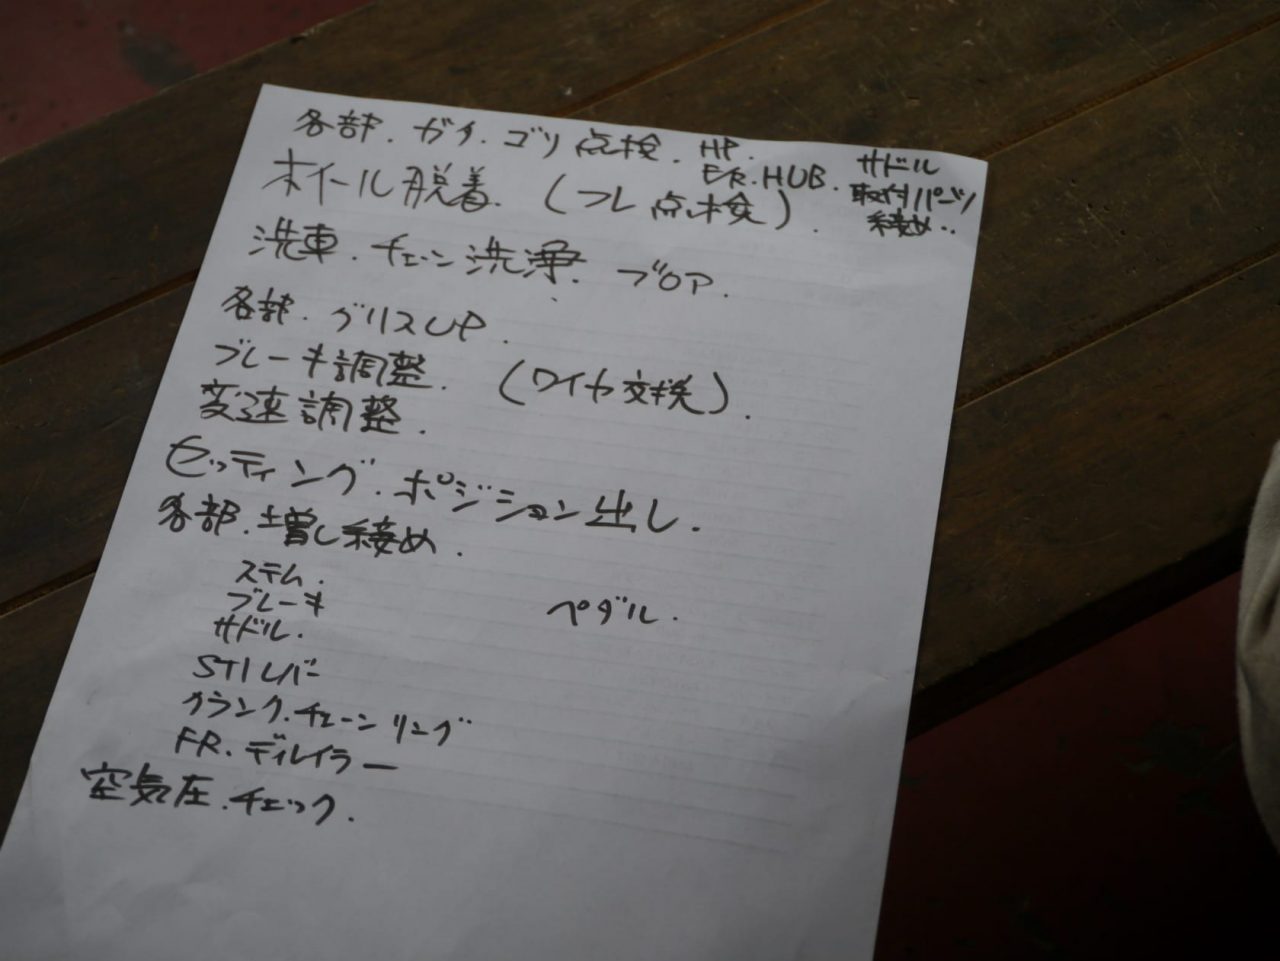 各部.ガタ.ゴリ点検.HP.
F/R.HUB.
サドル
取付パーツ
締め..
ホイール脱着.(フレ点検).
洗車.チェーン洗浄.ブロア.
各部.グリスUP.
ブレーキ調整.(ワイヤ交換).
変速調整.
セッティング.ポジション出し.
各部.増し締め.
ステム.
ブレーキ
ペダル.
サドル.
STIレバー
クランク.チェーンリング
FR.ディレイラー
空気圧.チェック.